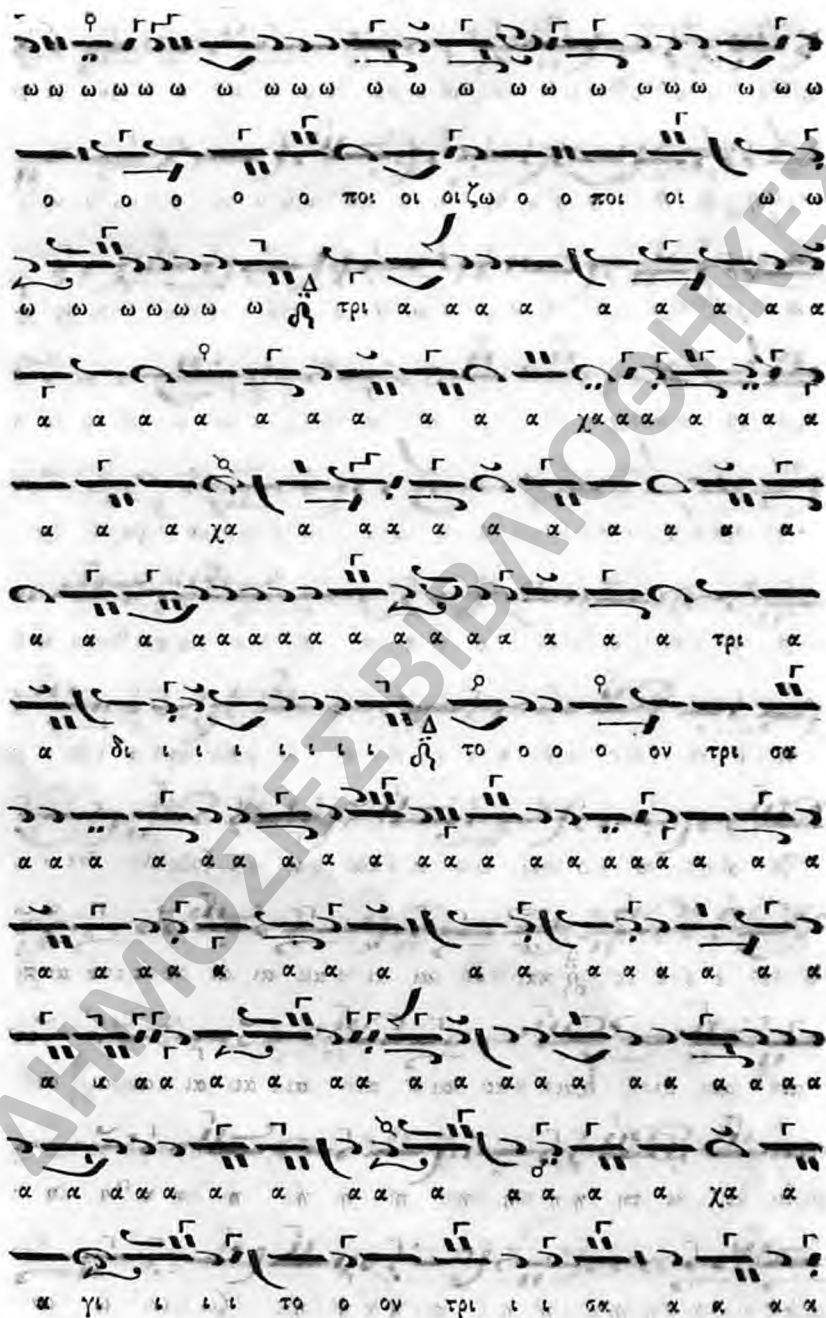 ω ω ω ω ω ω ω ω ω ω ω ω ω ω ω ω ω ω ω ω ω ω
ο ο ο ο ο ποι οι οι ζω ο ο ποι οι ω ω
ω ω ω ω ω ω ω Δ τρι α α α α α α α α α
α α α α α α α α α α χα α α α α α α
α α α χα α α α α α α α α α α
α α α α α α α α α α α α α α α α τρι α
α δι ι ι ι ι ι ι ι Δ το ο ο ο ον τρι σα
α α α α α α α α α α α α α α α α α α α α α
α α α α α α α α α α α α α α α α α α
α α α α α α α α α α α α α α α α α α α α
α α α α α α α α α α α α α χα α
α γι ι ι ι το ο ον τρι ι ι σα α α α α
ΔΗΜΟΣΙΕΣ ΒΙΒΛΙΟΘΗΚΕΣ